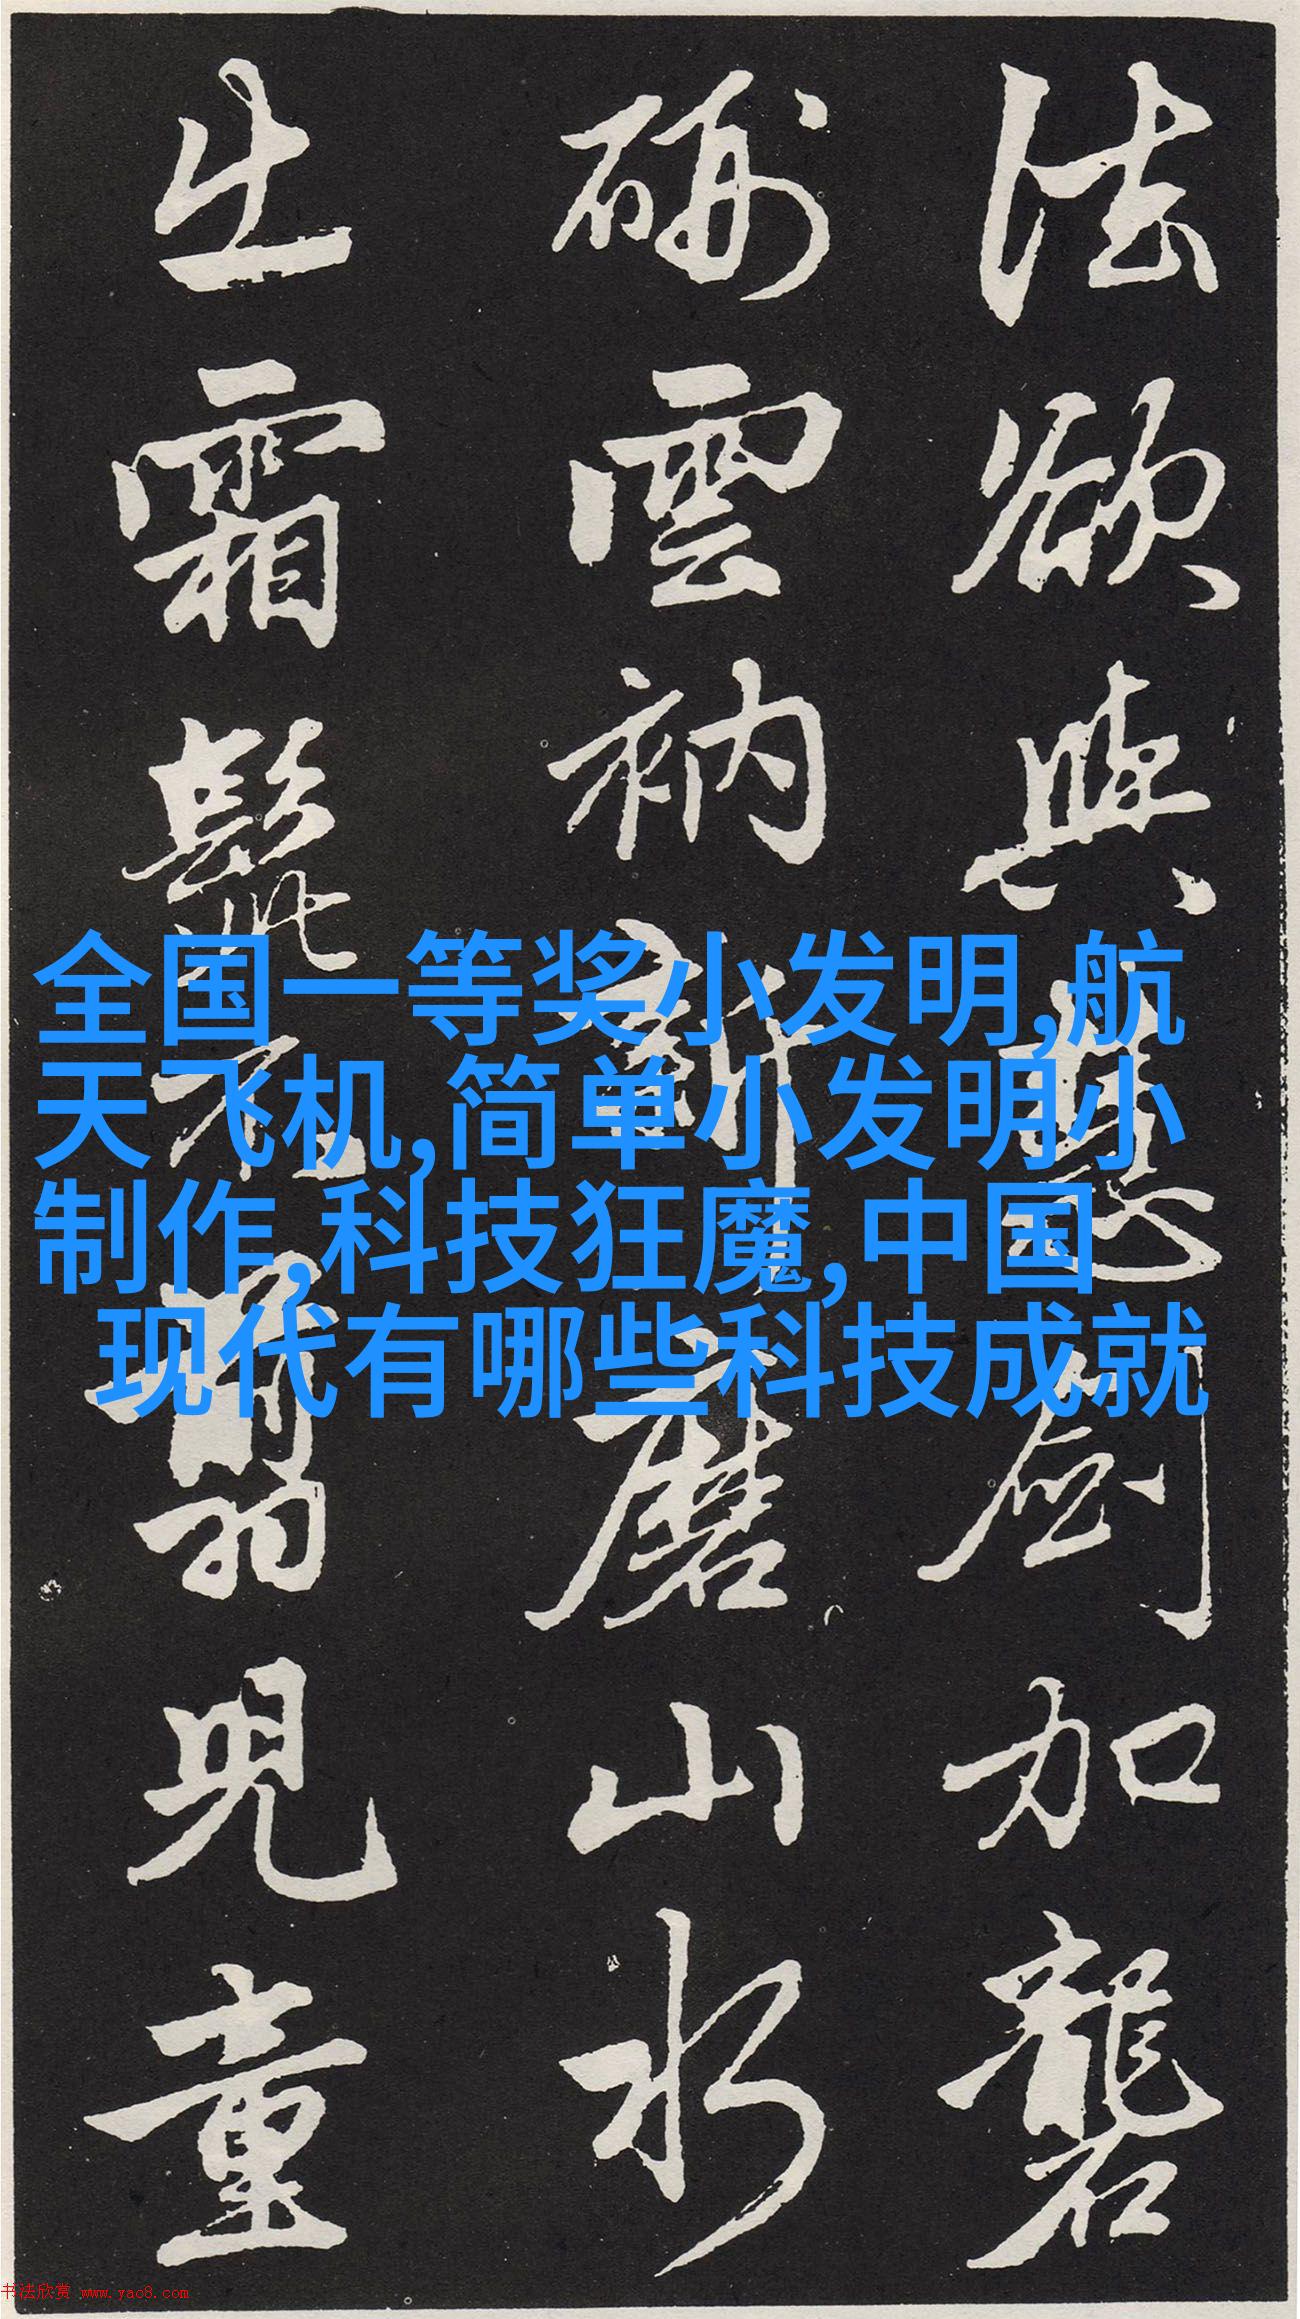 法欲與慧劍加礱
硎雲衲新磨山水
出霜髭翦兒童
全国一等奖小发明,航
天飞机,简单小发明小
制作,科技狂魔,中国
现代有哪些科技成就
书法欣赏 www.yac8.com